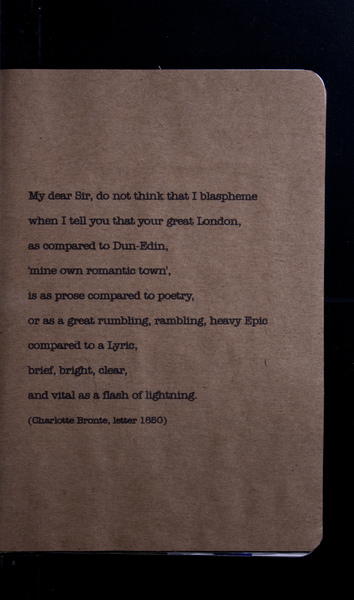 My dear Sir, do not think that I blaspheme
when I tell you that your great London,
as compared to Dun-Edin,
'mine own romantic town',
is as prose compared to poetry,
or as a great rumbling, rambling, heavy Epic
compared to a Lyric,
brief, bright, clear,
and vital as a flash of lightning.
(Charlotte Bronte, letter 1850)